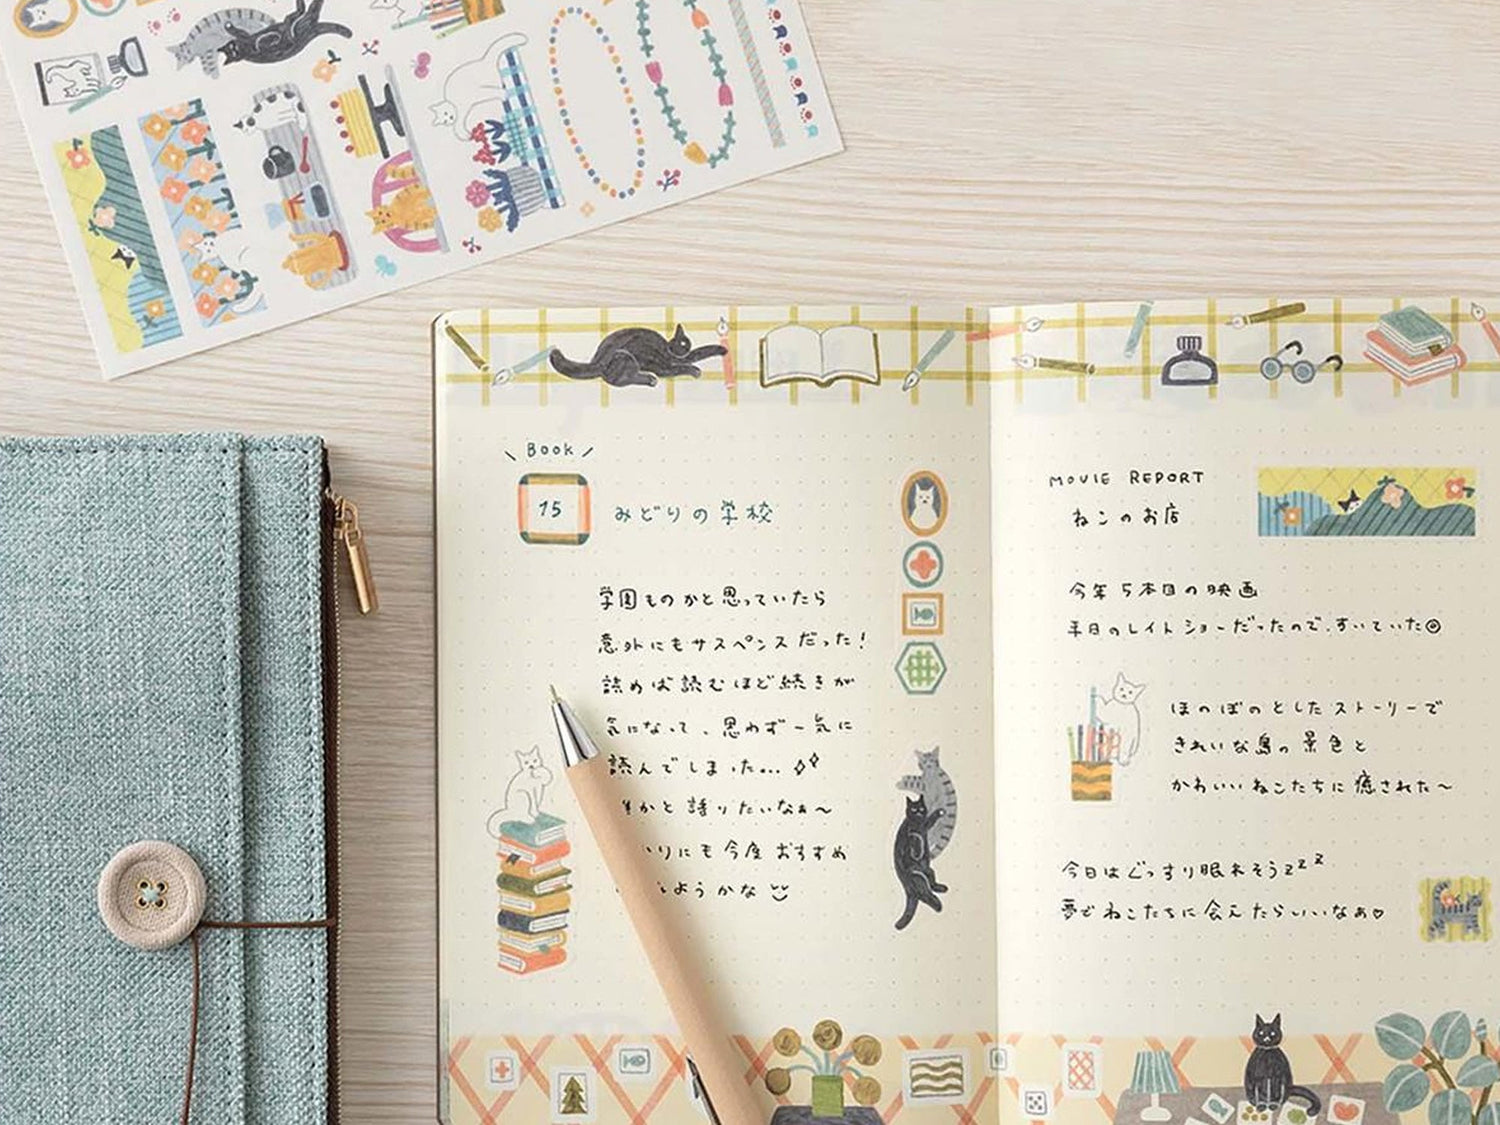 Book
15
みどりの学校
学園ものかと思っていたら
意外にもサスペンスだった!
読めば読むほど続きが
気になって、思わず一気に
読んでしまった...
かと語りたいなぁ~
りにも今度おすすめ
ようかな
MOVIE REPORT
ねこのお店
今年5本目の映画
平日のレイトショーだったので、すいていた
ほのぼのとしたストーリーで
きれいな島の景色と
かわいいねこたちに癒された~
今日はぐっすり眠れそうzzz
夢でねこたちに会えたらいいなぁ♡